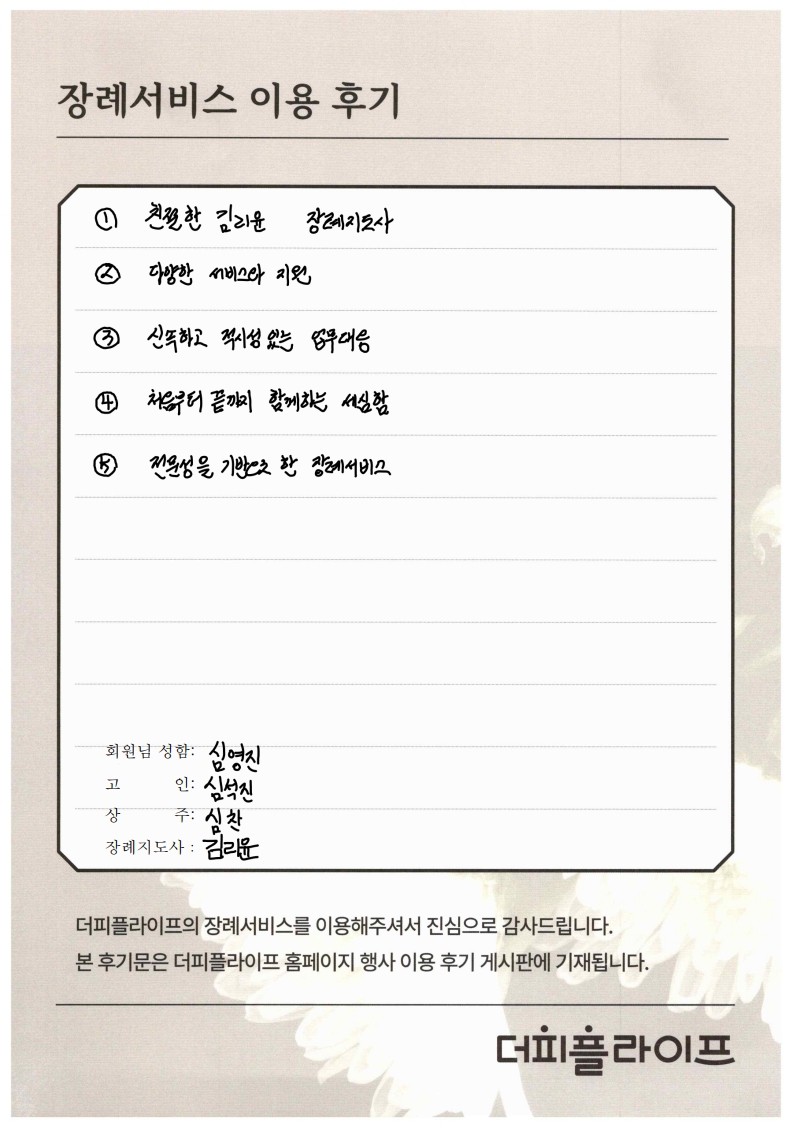 장례서비스 이용 후기
① 친절한 김리윤 장례지도사
② 다양한 서비스와 지원
③ 신뚝하고 적시성 있는 업무대응
④ 처음부터 끝까지 함께하는 세심함
⑤ 전문성을 기반으로 한 장례서비스
회원님 성함: 심영진
고 인: 심석진
상 주: 심찬
장례지도사 : 김리윤
더피플라이프의 장례서비스를 이용해주셔서 진심으로 감사드립니다.
본 후기문은 더피플라이프 홈페이지 행사 이용 후기 게시판에 기재됩니다.
더피플라이프